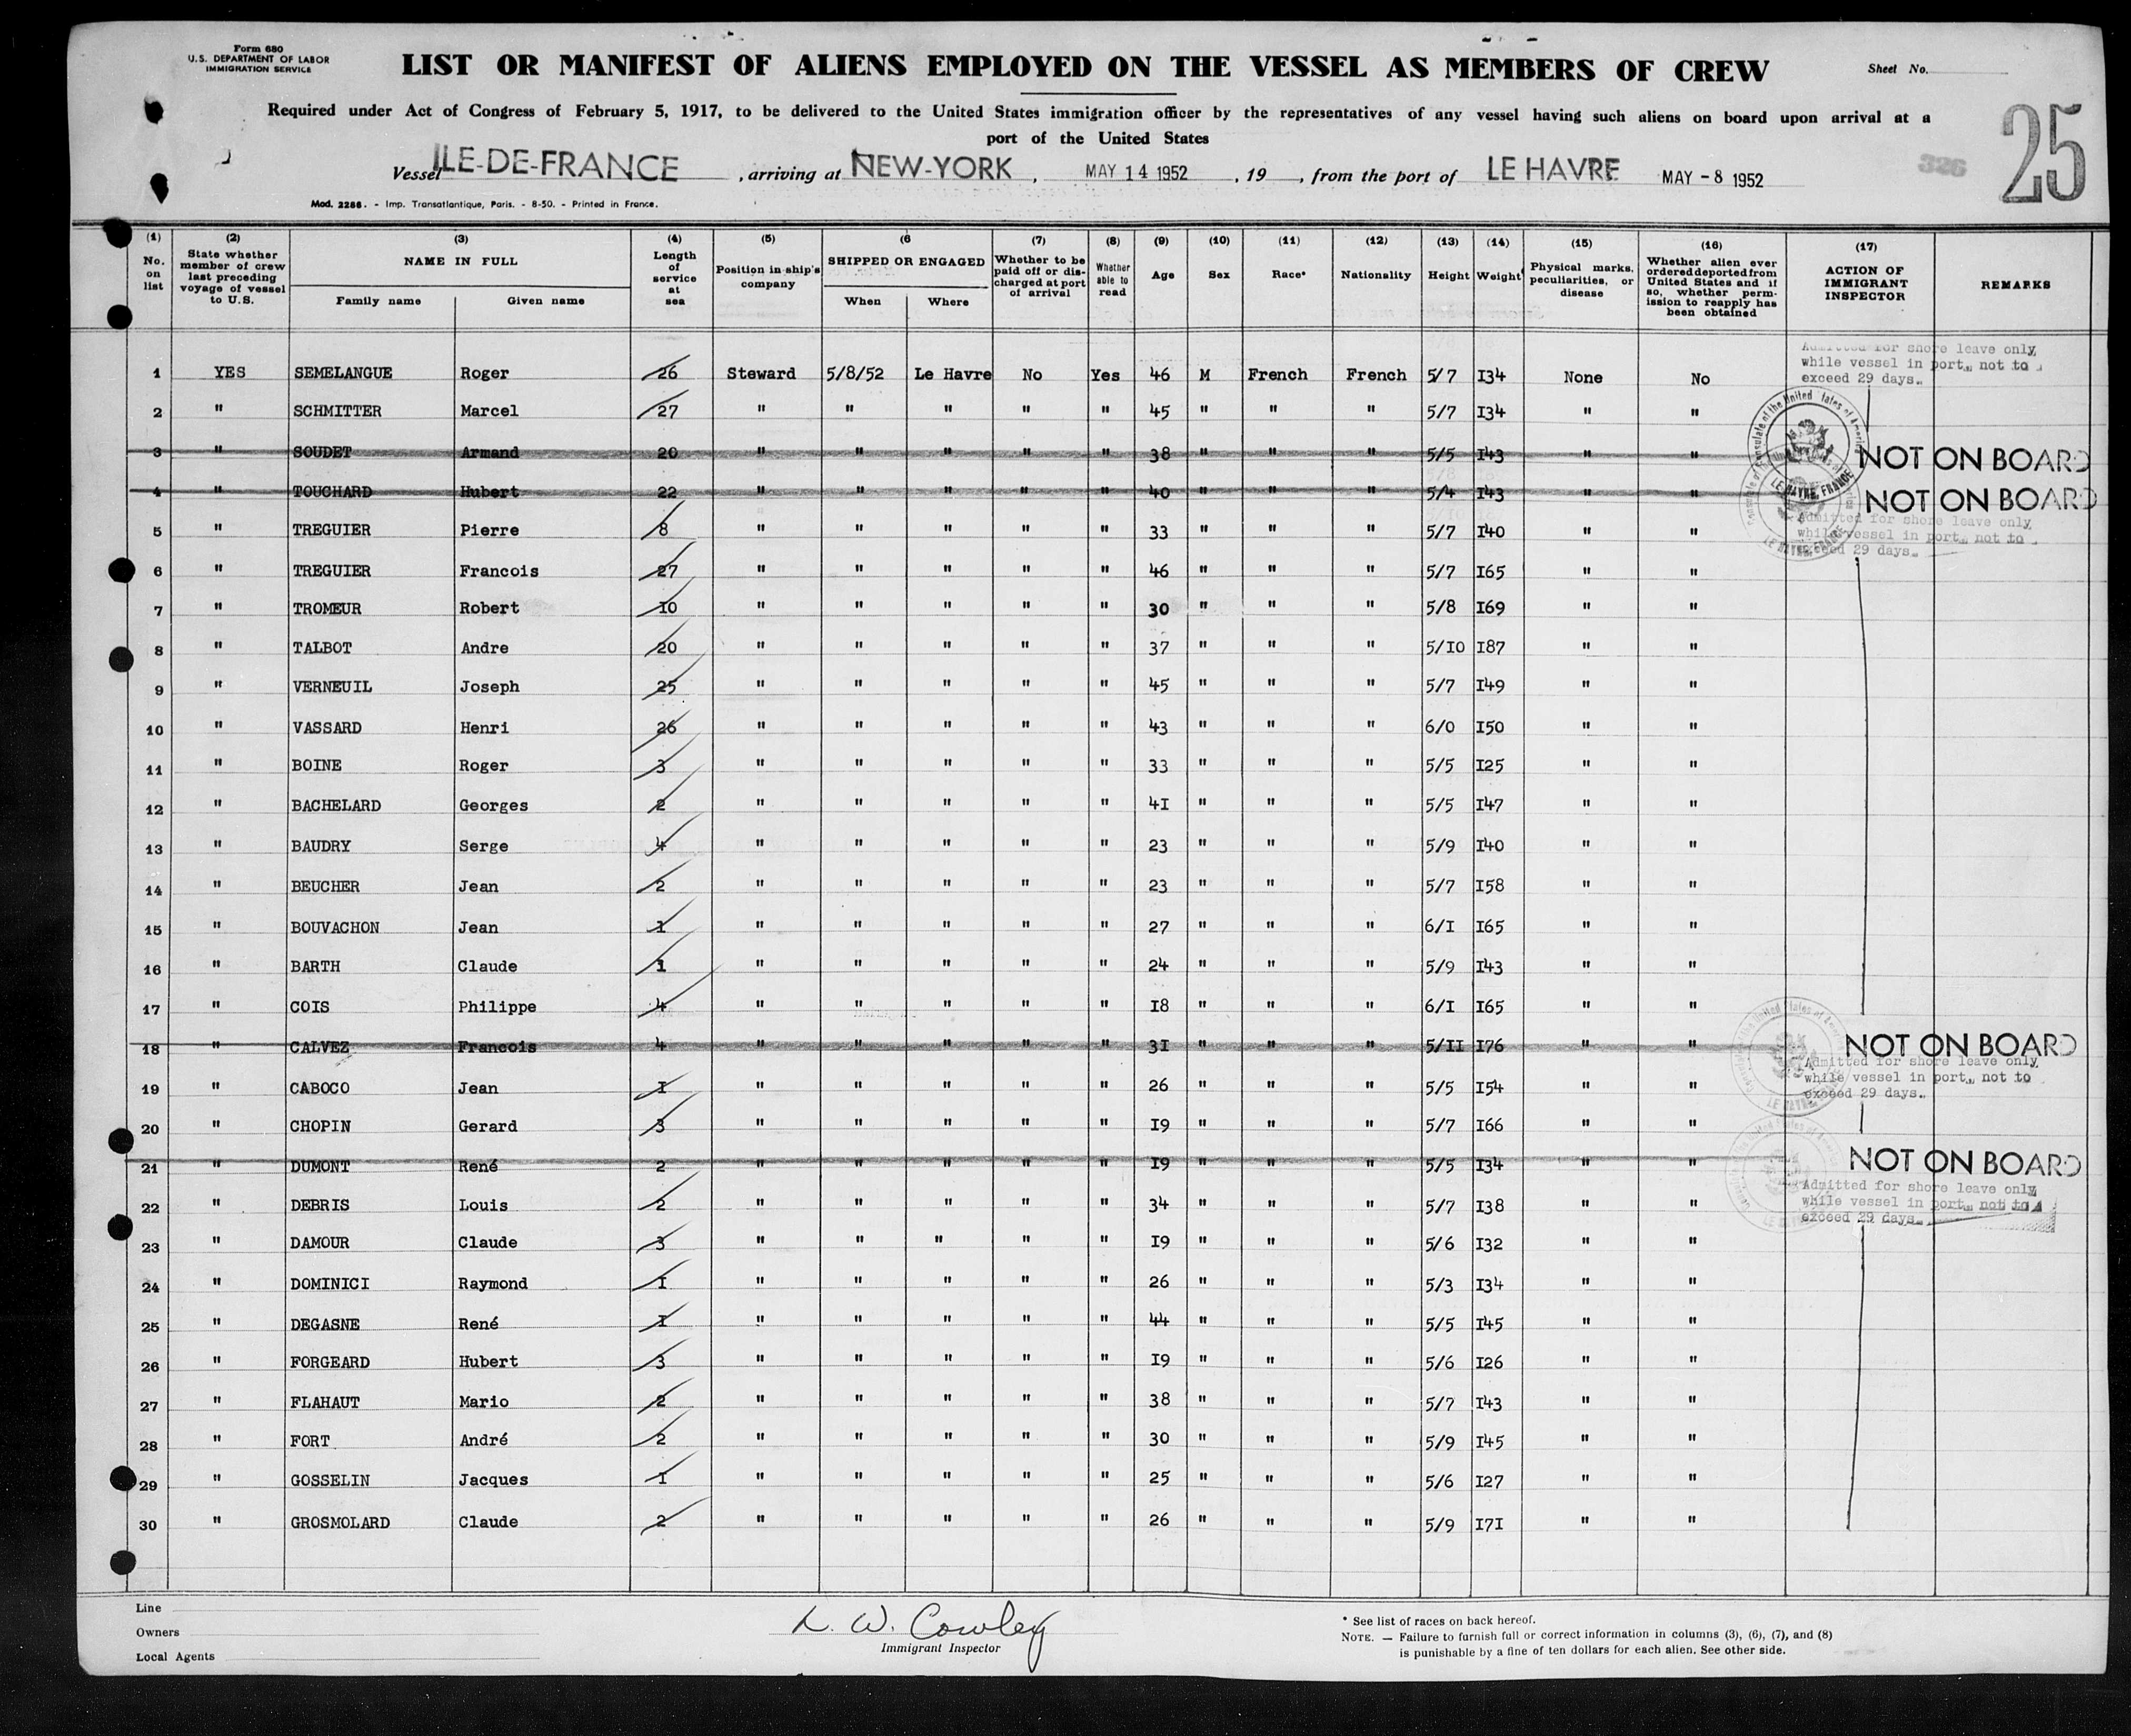 Form 680
U.S. DEPARTMENT OF LABOR
IMMIGRATION SERVICE
LIST OR MANIFEST OF ALIENS EMPLOYED ON THE VESSEL AS MEMBERS OF CREW
Sheet No.
Required under Act of Congress of February 5, 1917, to be delivered to the United States immigration officer by the representatives of any vessel having such aliens on board upon arrival at a
port of the United States
25
326
Vessel ILE-DE-FRANCE , arriving at NEW-YORK , MAY 14 1952 , 19 , from the port of LE HAVRE MAY - 8 1952
Mod. 2286. - Imp. Transatlantique, Paris. - 8-50. - Printed in France.
(1) No. on list
(2) State whether member of crew last preceding voyage of vessel to U.S.
(3) NAME IN FULL Family name Given name
(4) Length of service at sea
(5) Position in ship's company
(6 SHIPPED OR ENGAGED When Where
(7) Whether to be paid off or discharged at port of arrival
(8) Whether able to read
(9) Age
(10) Sex
(11) Race*
(12) Nationality
(13) Height
(14) Weight
(15) Physical marks, peculiarities, or disease
(16) Whether alien ever ordered deported from United States and if so, whether permission to reapply has been obtained
(17) ACTION OF IMMIGRANT INSPECTOR
REMARKS
1 YES SEMELANGUE Roger 26 Steward 5/8/52 Le Havre No Yes 46 M French French 5/7 134 None No
Admitted for shore leave only
while vessel in port, not to
exceed 29 days.
2 " SCHMITTER Marcel 27 " " " " " 45 " " " 5/7 134 " "
3 " SOUDET Armand 20 " " " " " 38 " " " 5/5 143 " " NOT ON BOARD
4 " TOUCHARD Hubert 22 " " " " " 40 " " " 5/4 143 " " NOT ON BOARD
LE HAVRE, FRANCE
Admitted for shore leave only
while vessel in port, not to
exceed 29 days.
5 " TREGUIER Pierre 8 " " " " " 33 " " " 5/7 140 " "
6 " TREGUIER Francois 27 " " " " " 46 " " " 5/7 165 " "
7 " TROMEUR Robert 10 " " " " " 30 " " " 5/8 169 " "
8 " TALBOT Andre 20 " " " " " 37 " " " 5/10 187 " "
9 " VERNEUIL Joseph 25 " " " " " 45 " " " 5/7 149 " "
10 " VASSARD Henri 26 " " " " " 43 " " " 6/0 150 " "
11 " BOINE Roger 3 " " " " " 33 " " " 5/5 125 " "
12 " BACHELARD Georges 2 " " " " " 41 " " " 5/5 147 " "
13 " BAUDRY Serge 4 " " " " " 23 " " " 5/9 140 " "
14 " BEUCHER Jean 2 " " " " " 23 " " " 5/7 158 " "
15 " BOUVACHON Jean 1 " " " " " 27 " " " 6/1 165 " "
16 " BARTH Claude 1 " " " " " 24 " " " 5/9 143 " "
17 " COIS Philippe 4 " " " " " 18 " " " 6/1 165 " "
18 " CALVEZ Francois 4 " " " " " 31 " " " 5/11 176 " " NOT ON BOARD
Admitted for shore leave only
while vessel in port, not to
exceed 29 days.
19 " CABOCO Jean 1 " " " " " 26 " " " 5/5 154 " "
20 " CHOPIN Gerard 3 " " " " " 19 " " " 5/7 166 " "
21 " DUMONT René 2 " " " " " 19 " " " 5/5 134 " " NOT ON BOARD
Admitted for shore leave only
while vessel in port, not to
exceed 29 days.
22 " DEBRIS Louis 2 " " " " " 34 " " " 5/7 138 " "
23 " DAMOUR Claude 3 " " " " " 19 " " " 5/6 132 " "
24 " DOMINICI Raymond 1 " " " " " 26 " " " 5/3 134 " "
25 " DEGASNE René 1 " " " " " 44 " " " 5/5 145 " "
26 " FORGEARD Hubert 3 " " " " " 19 " " " 5/6 126 " "
27 " FLAHAUT Mario 2 " " " " " 38 " " " 5/7 143 " "
28 " FORT André 2 " " " " " 30 " " " 5/9 145 " "
29 " GOSSELIN Jacques 1 " " " " " 25 " " " 5/6 127 " "
30 " GROSMOLARD Claude 2 " " " " " 26 " " " 5/9 171 " "
Line
Owners
Local Agents
L. W. Cowley
Immigrant Inspector
* See list of races on back hereof.
NOTE. — Failure to furnish full or correct information in columns (3), (6), (7), and (8)
is punishable by a fine of ten dollars for each alien. See other side.